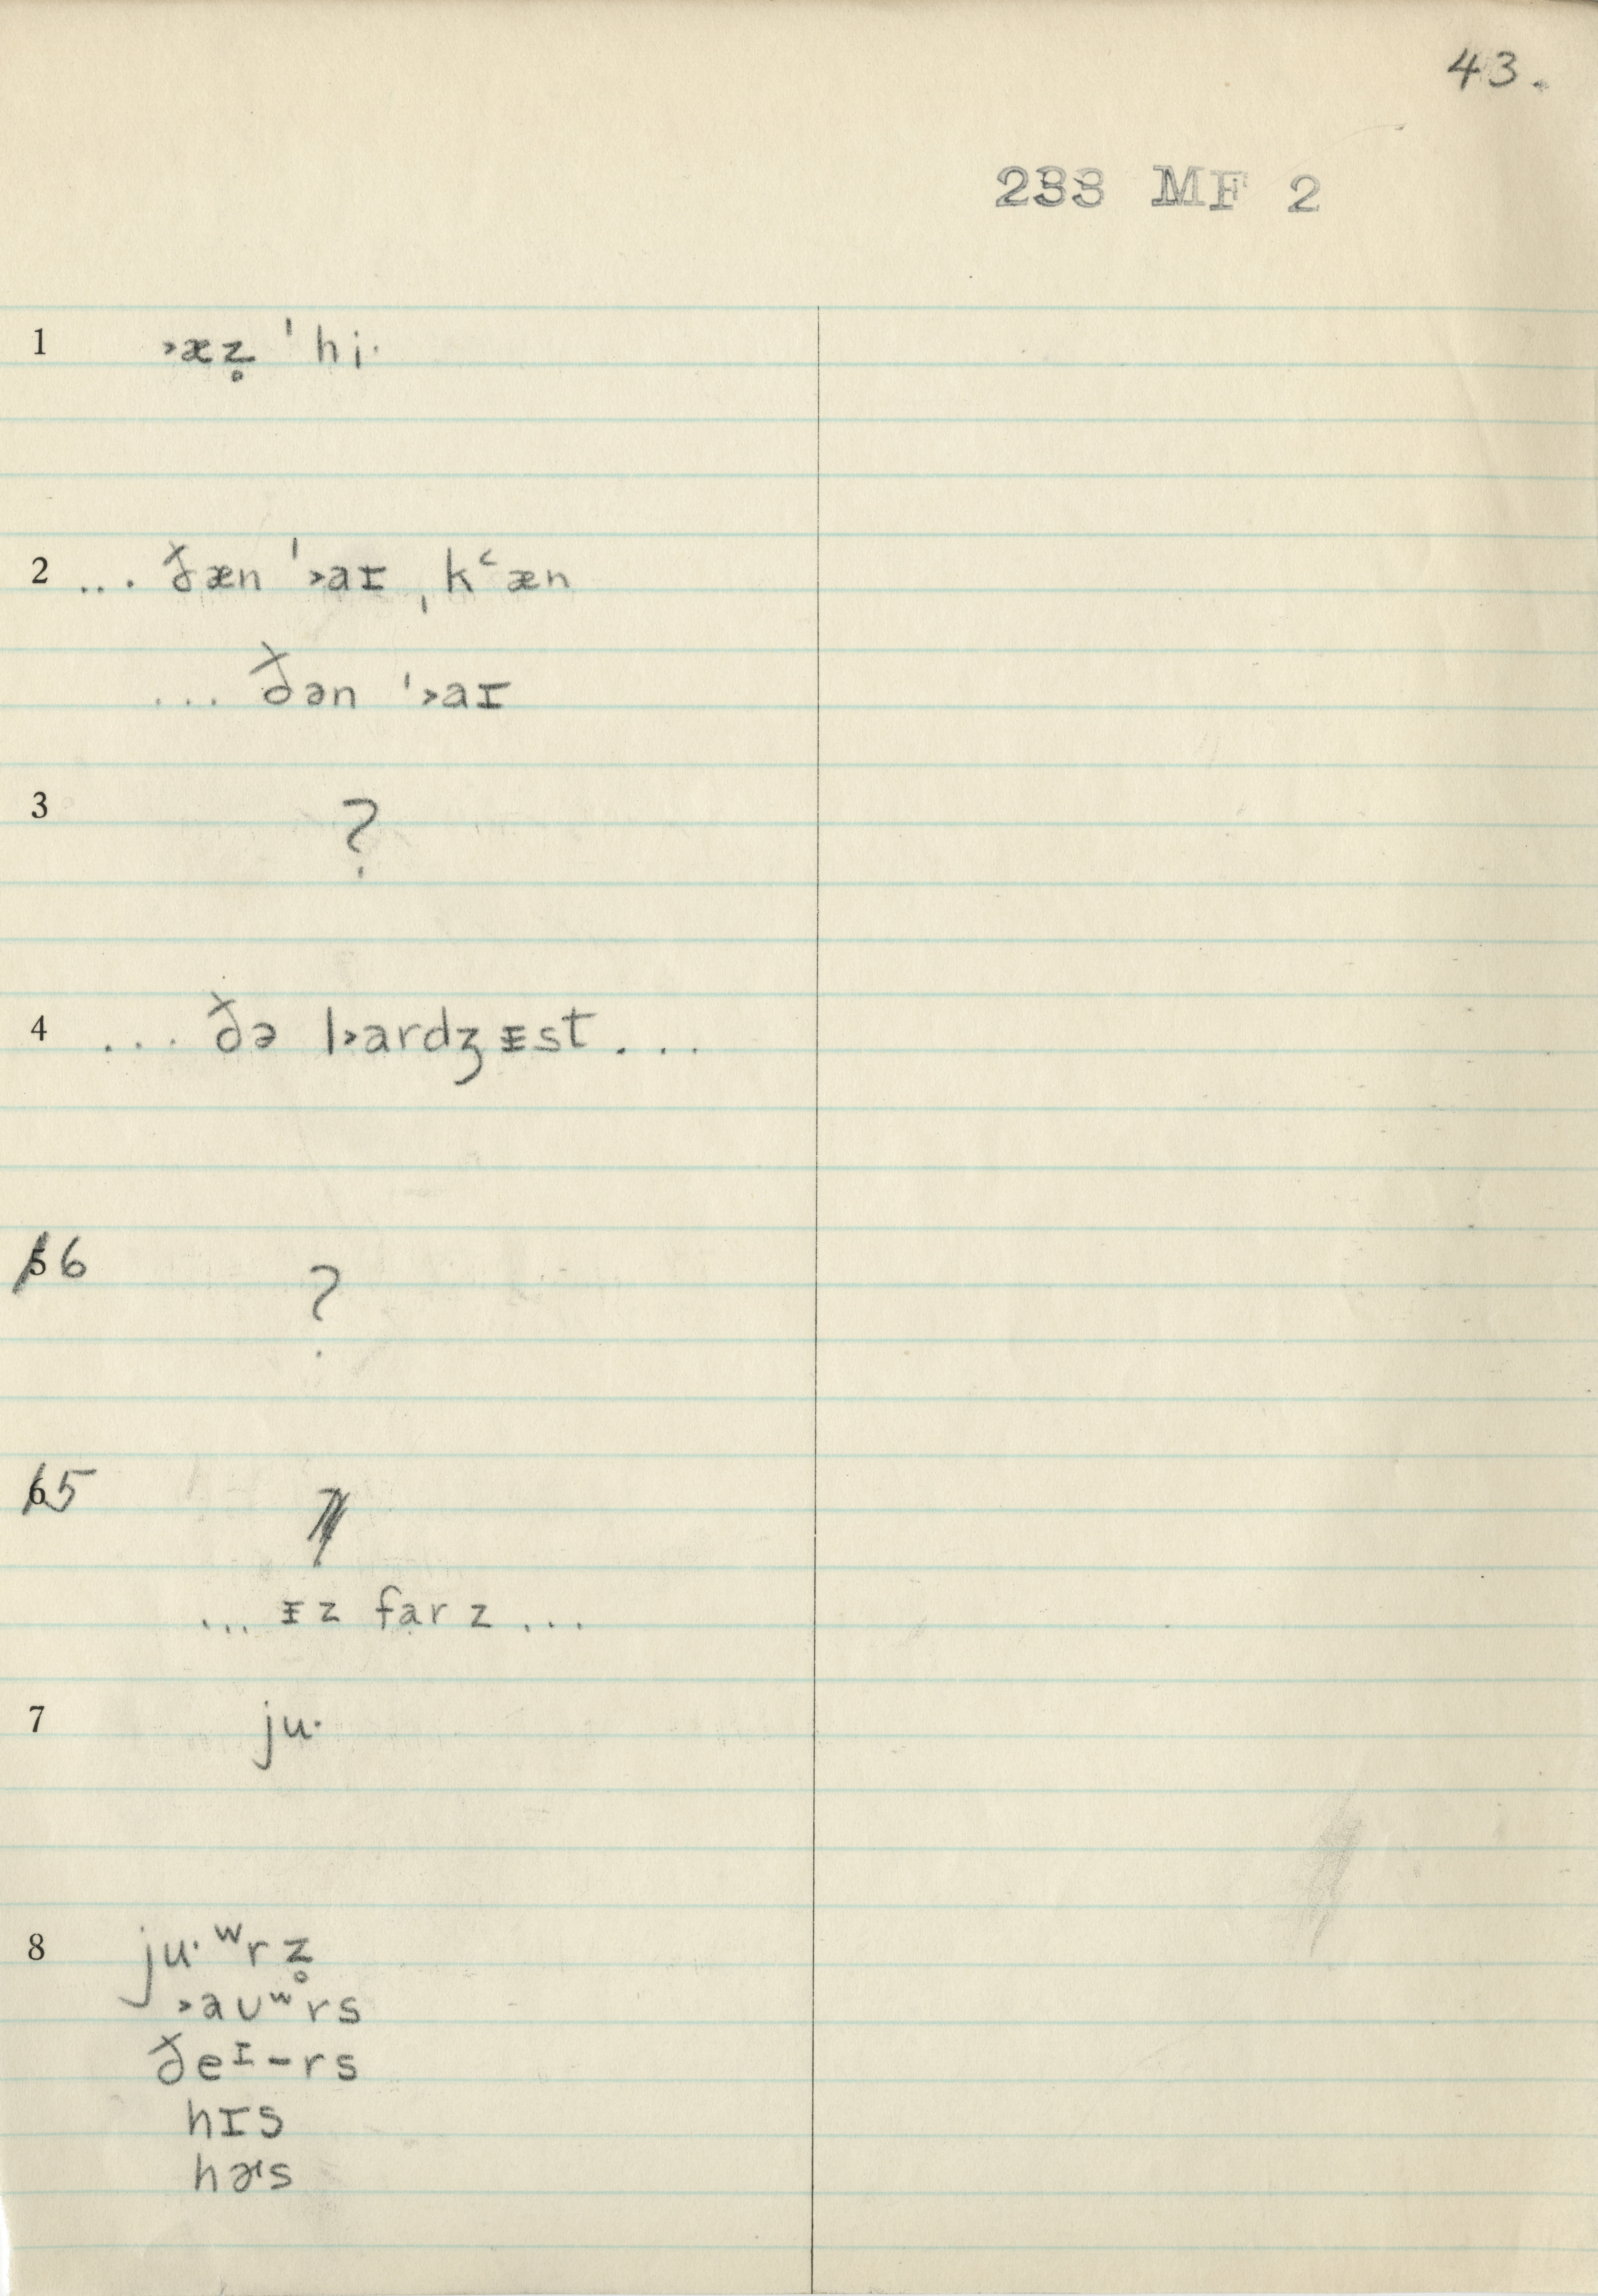 43.
233 MF 2
1 ˃æz̥ ˈhi·
2 ... ðæn ˈ˃aɪ ˌkʻæn
... ðən ˈ˃aɪ
3 ?
4 ... ðə l˃ardʒᵻst ...
5 6 ?
6 5
... ᵻz farz ...
7 ju·
8 ju·ʷrz̥
˃aᴜʷrs
ðeɪ-rs
hɪs
hɚs